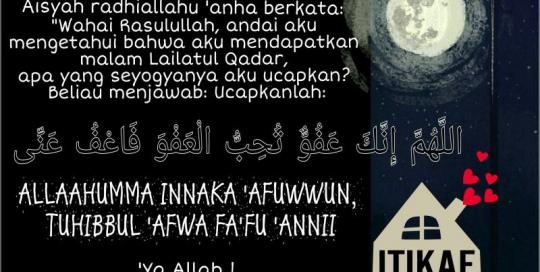 Aisyah radhiallahu 'anha berkata:
"Wahai Rasulullah, andai aku
mengetahui bahwa aku mendapatkan
malam Lailatul Qadar,
apa yang seyogyanya aku ucapkan?
Beliau menjawab: Ucapkanlah:
اللَّهُمَّ إِنَّكَ عَفُوٌّ تُحِبُّ الْعَفْوَ فَاعْفُ عَنَّى
ALLAAHUMMA INNAKA 'AFUWWUN,
TUHIBBUL 'AFWA FA'FU 'ANNII
ITIKAF
'Ya Allah !